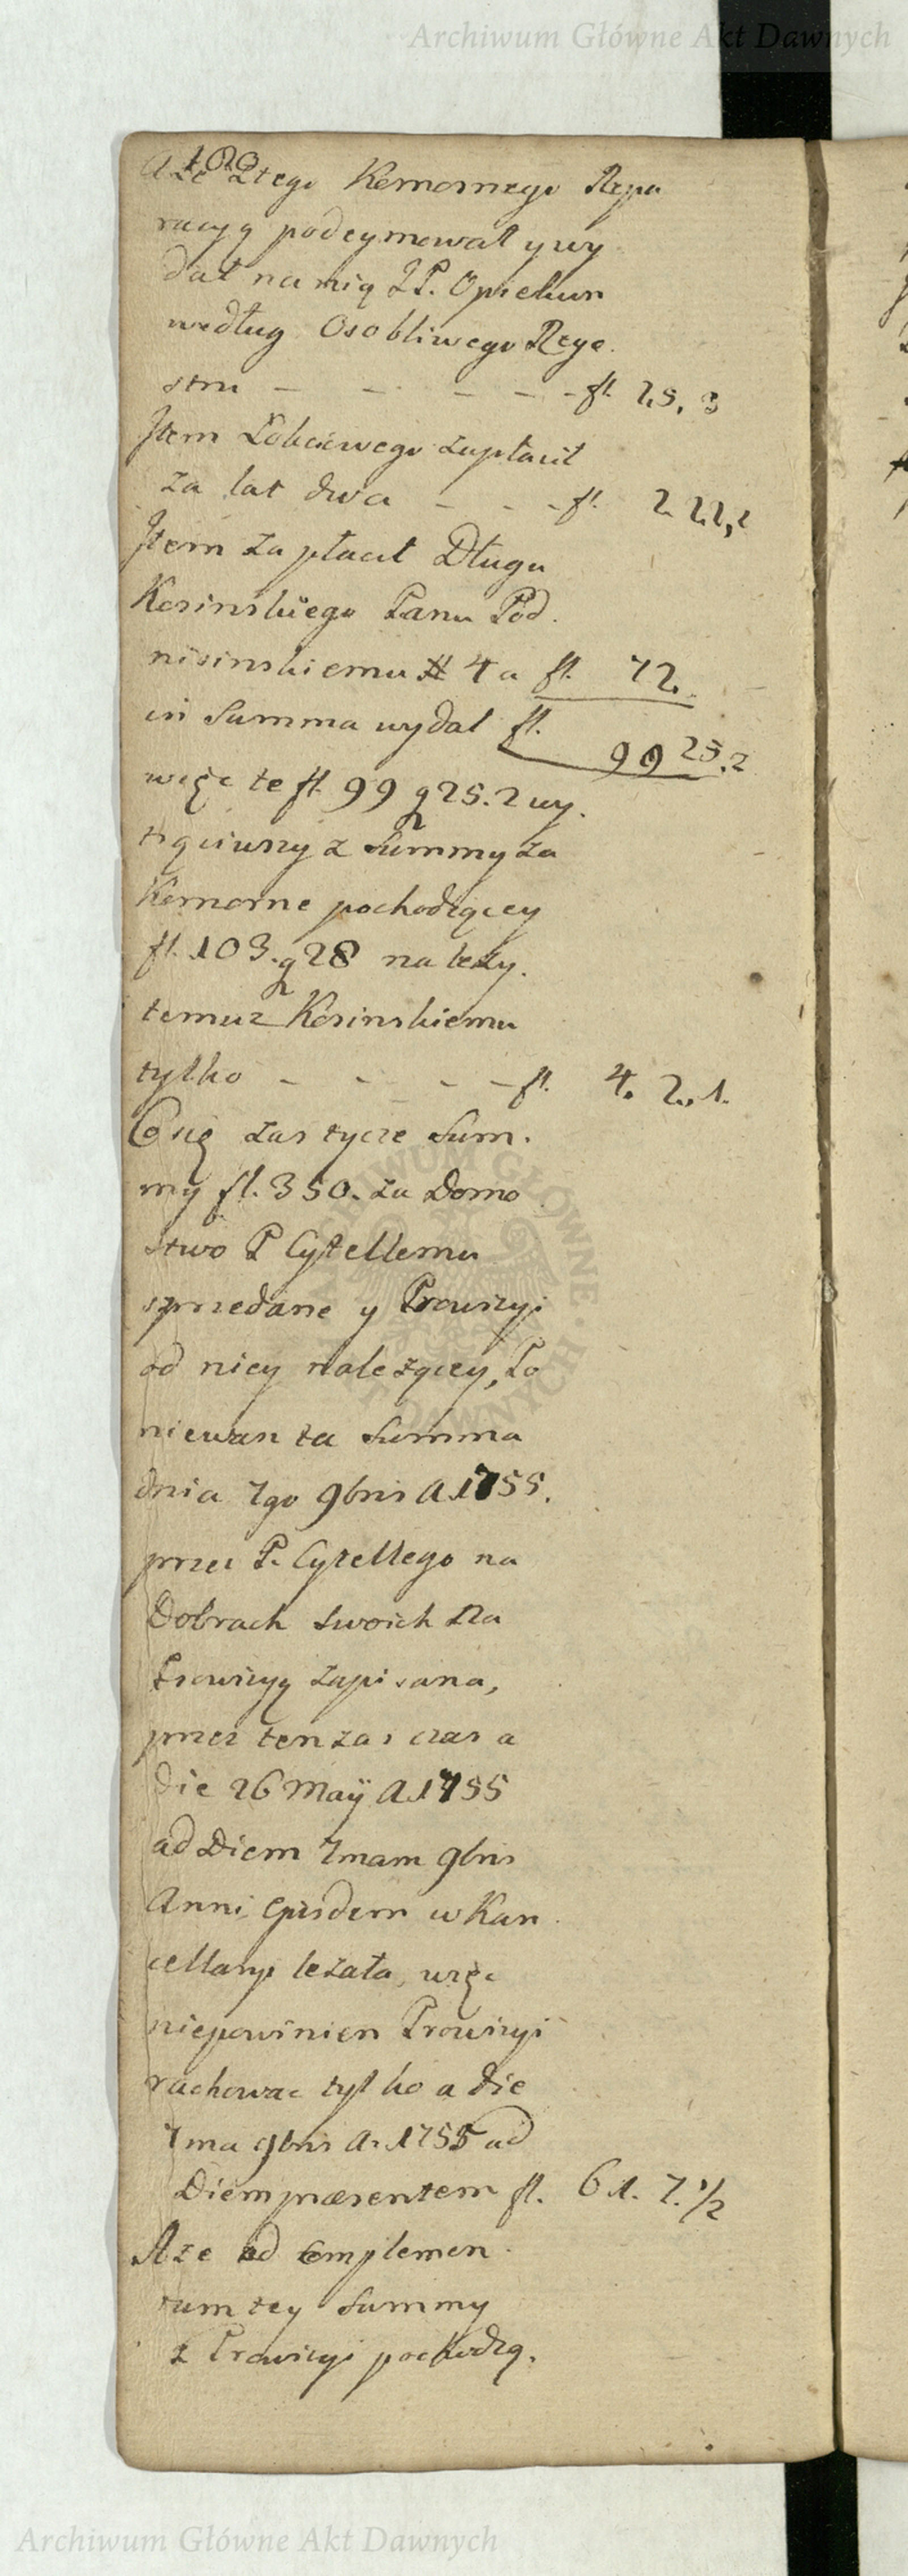 Archiwum Główne Akt Dawnych
A że z tego Komornego Repa
racyą podeymował y wy
dał na nią J P. Opiekun
według Osobliwego Reye.
stru - - - - - fl. 25, 3
Item Łokciowego zapłacił
za lat dwa - - - fl. 2. 22, 2
Item Zapłacił Długu
Kosinskiego Panu Pod.
nisinskiemu # 4 a fl. 72.
in Summa wydał fl. 99 25. 2
więc te fl 99 g 25. 2 wy.
trąciwszy z Summy za
Komorne pochodzącey
fl. 103. g 28 należy.
temuz Kosinskiemu
tylko - - - - fl. 4. 2. 1.
Co się zas tycze Sum.
my fl. 350. za Domo
stwo P Cytellemu
sprzedane y Prowizyi
od niey należącey, Po
niewasz ta Summa
dnia 7go 9bris A. 1755.
przez P. Cytellego na
Dobrach Swoich Na
Prowizyą zapisana,
przez ten zas czas a
Die 26 Maÿ A. 1755
ad Diem 7mam 9bris
Anni Ejusdem w Kan
cellaryi leżała, więc
niepowinien Prowizyi
rachowac tylko a die
7ma 9bris A. 1755 ad
Diem præsentem fl. 61. 7. 1/2
A ze ad Complemen.
tum tey Summy
z Prowizyi pochodzą.
Archiwum Główne Akt Dawnych